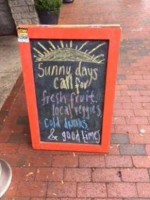 Sunny days
call for
fresh fruit
local veggies
cold drinks
& good times